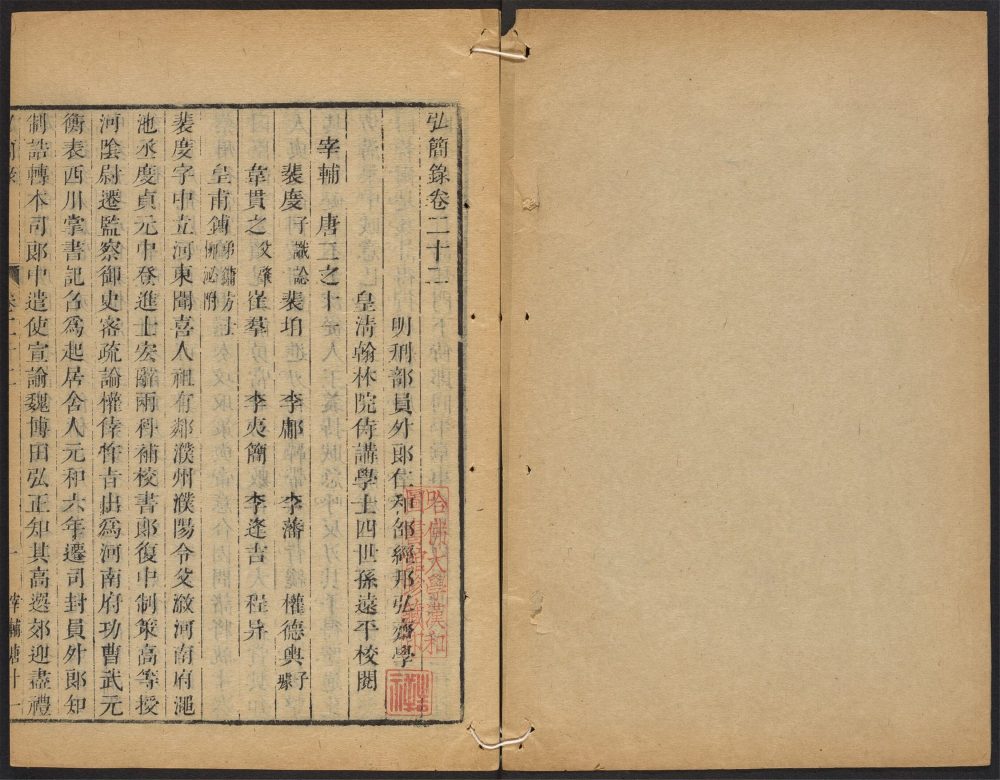 弘簡錄卷二十二
明刑部員外郎仁和邵經邦弘齋學
皇清翰林院侍講學士四世孫遠平校閱
宰輔 唐五之十
裴度子識 諗 裴垍 李鄘 李藩 權德輿子璩
韋貫之 崔羣 李夷簡 李逢吉 程异
皇甫鎛弟鏞
裴度字中立河東聞喜人祖有鄰濮州濮陽令父漵河南府澠
池丞度貞元中登進士宏辭兩科補校書郎復中制策高等授
河陰尉遷監察御史密疏論權倖忤旨出爲河南府功曹武元
衡表西川掌書記召爲起居舍人元和六年遷司封員外郎知
制誥轉本司郎中遣使宣諭魏博田弘正知其高選郊迎盡禮
哈佛大學漢和
圖書館珍藏印